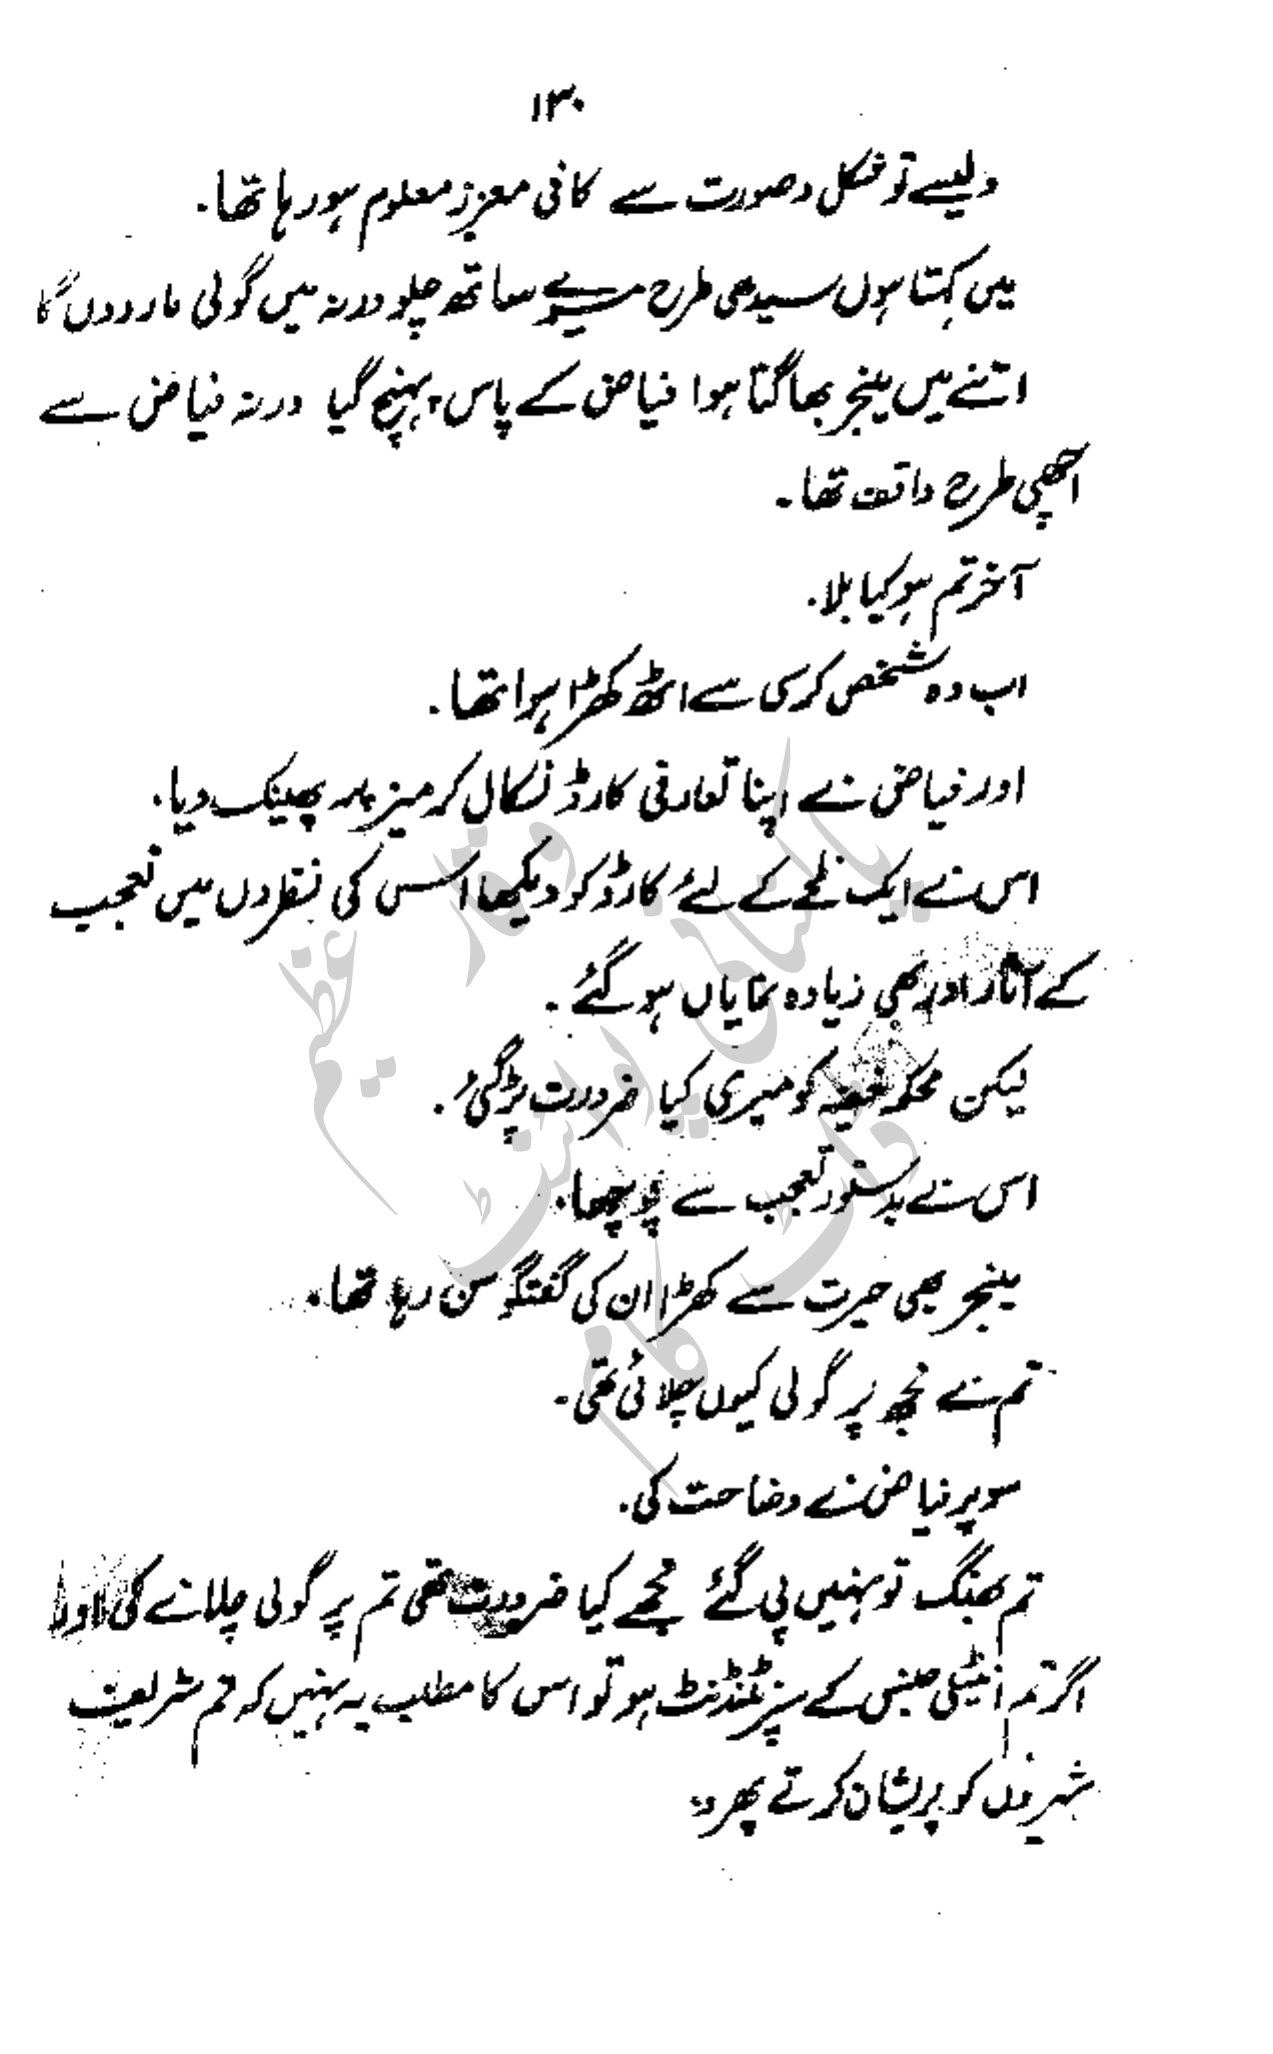 ۱۳۰
ویسے تو شکل و صورت سے کافی معزز معلوم ہو رہا تھا۔
میں کہتا ہوں سیدھی طرح میرے ساتھ چلو ورنہ میں گولی مار دوں گا
اتنے میں مینجر بھاگتا ہوا فیاض کے پاس پہنچ گیا ورنہ فیاض سے
اچھی طرح واقف تھا۔
آخر تم ہو کیا بلا۔
اب وہ شخص کرسی سے اٹھ کھڑا ہوا تھا۔
اور فیاض نے اپنا تعارفی کارڈ نکال کر میز پر پھینک دیا۔
اس نے ایک لمحے کے لئے کارڈ کو دیکھا اس کی نظروں میں تعجب
کے آثار اور بھی زیادہ نمایاں ہو گئے۔
لیکن محکمہ خفیہ کو میری کیا ضرورت پڑ گئی۔
اس نے بدستور تعجب سے پوچھا۔
مینجر بھی حیرت سے کھڑا ان کی گفتگو سن رہا تھا۔
تم نے مجھ پر گولی کیوں چلائی تھی۔
سوپر فیاض نے وضاحت کی۔
تم بھنگ تو نہیں پی گئے مجھے کیا ضرورت تھی تم پر گولی چلانے کی اور
اگر تم انٹیلی جنس کے سپرنٹنڈنٹ ہو تو اس کا مطلب یہ نہیں کہ تم شریف
شہریوں کو پریشان کرتے پھرو۔
وقار عظیم
پاکستانی پوائنٹ
ڈاٹ کام